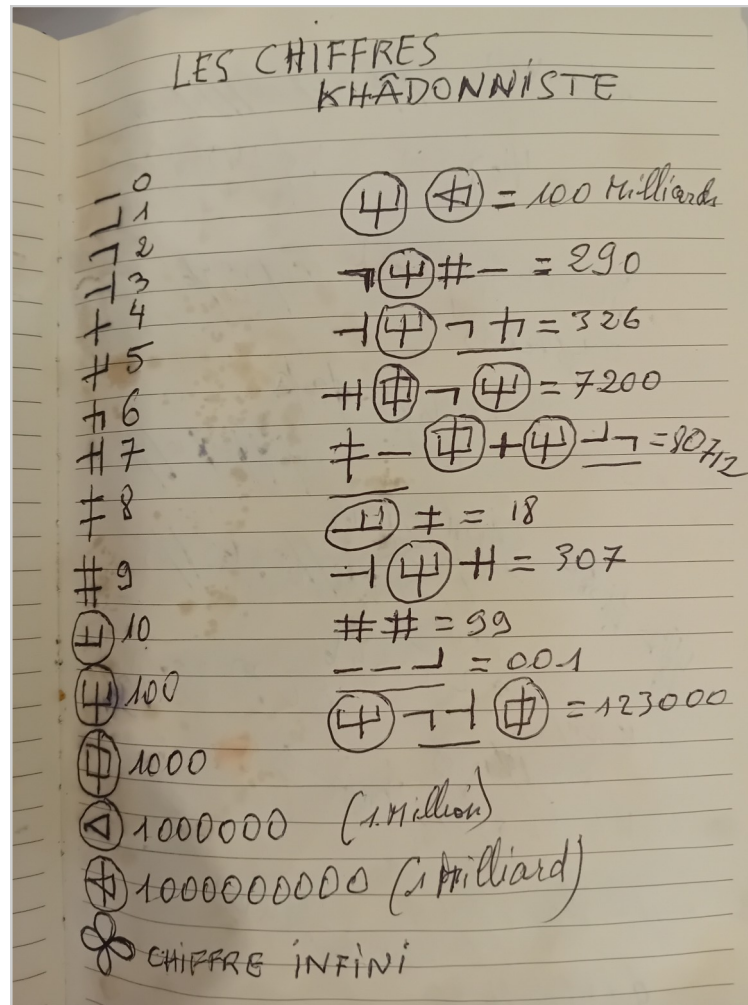 LES CHIFFRES
KHÂDONNISTE
0
1
2
3
4
5
6
7
8
9
10
100
1000
1000000 (1 Million)
1000000000 (1 Milliard)
CHIFFRE INFINI
= 100 Milliards
= 290
= 326
= 7200
= 80712
= 18
= 307
= 99
= 001
= 123000